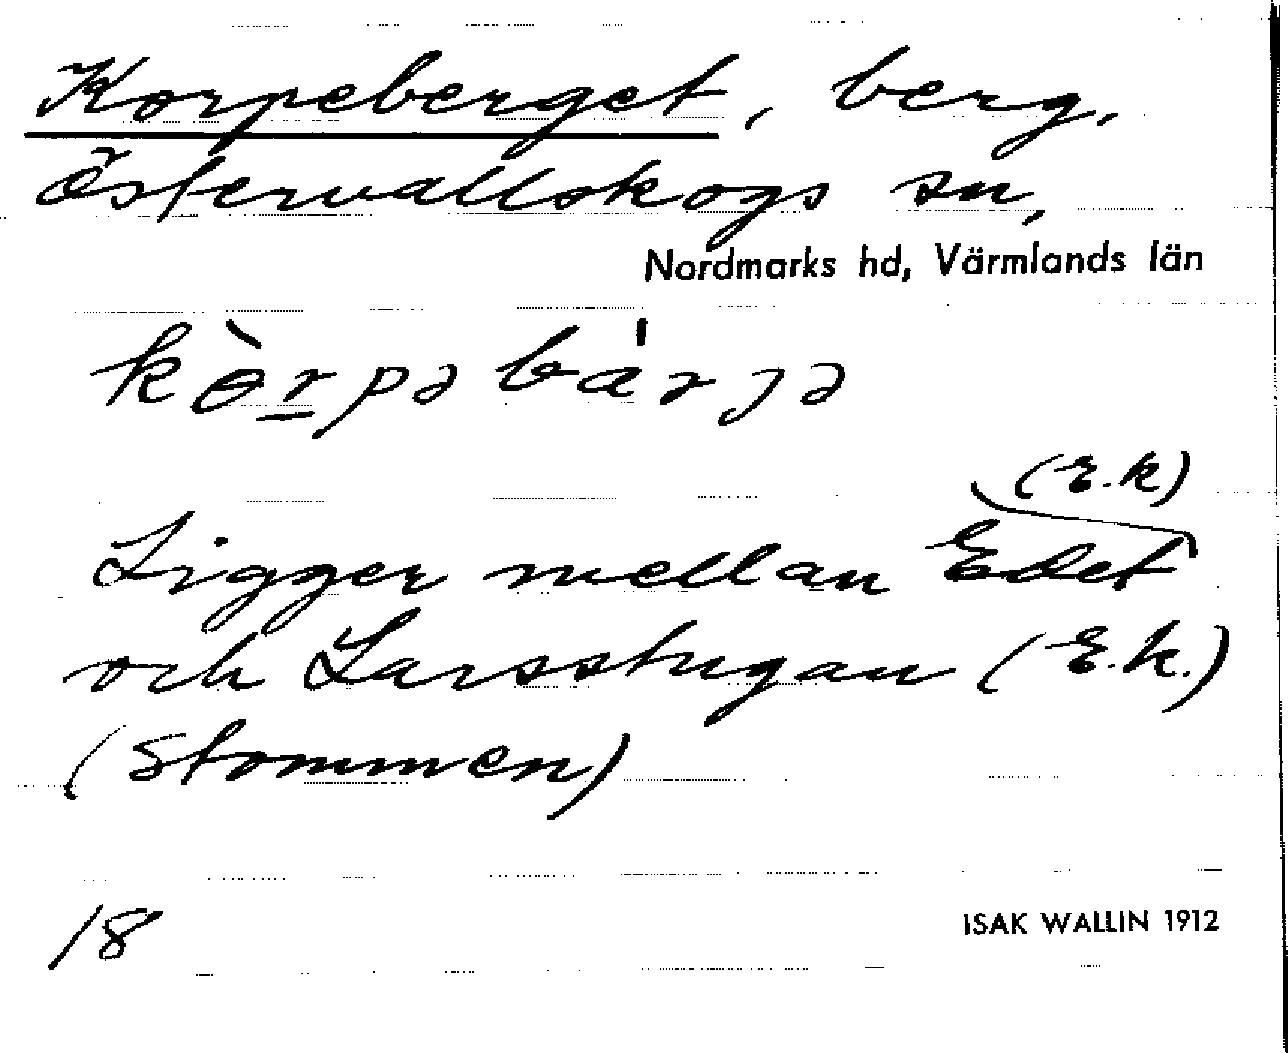 Korpeberget, berg,
Östervallskogs sn,
Nordmarks hd, Värmlands län
kɵ̀rpəbá̍rjə
(E.k)
Ligger mellan Edet
och Larsstugan (E.k.)
(Stommen)
18
ISAK WALLIN 1912